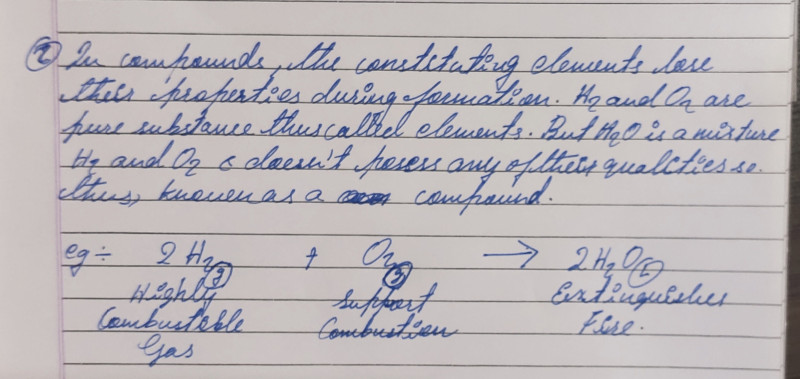 ② In compounds, the constituting elements lose
their properties during formation. H2 and O2 are
pure substance thus called elements. But H2O is a mixture
H2 and O2 & doesn't posess any of their qualities so.
thus, known as a compound.
eg ÷ 2H2(g) + O2(g) → 2H2O(L)
Highly Support Extinguishes
Combustible Combustion Fire.
Gas